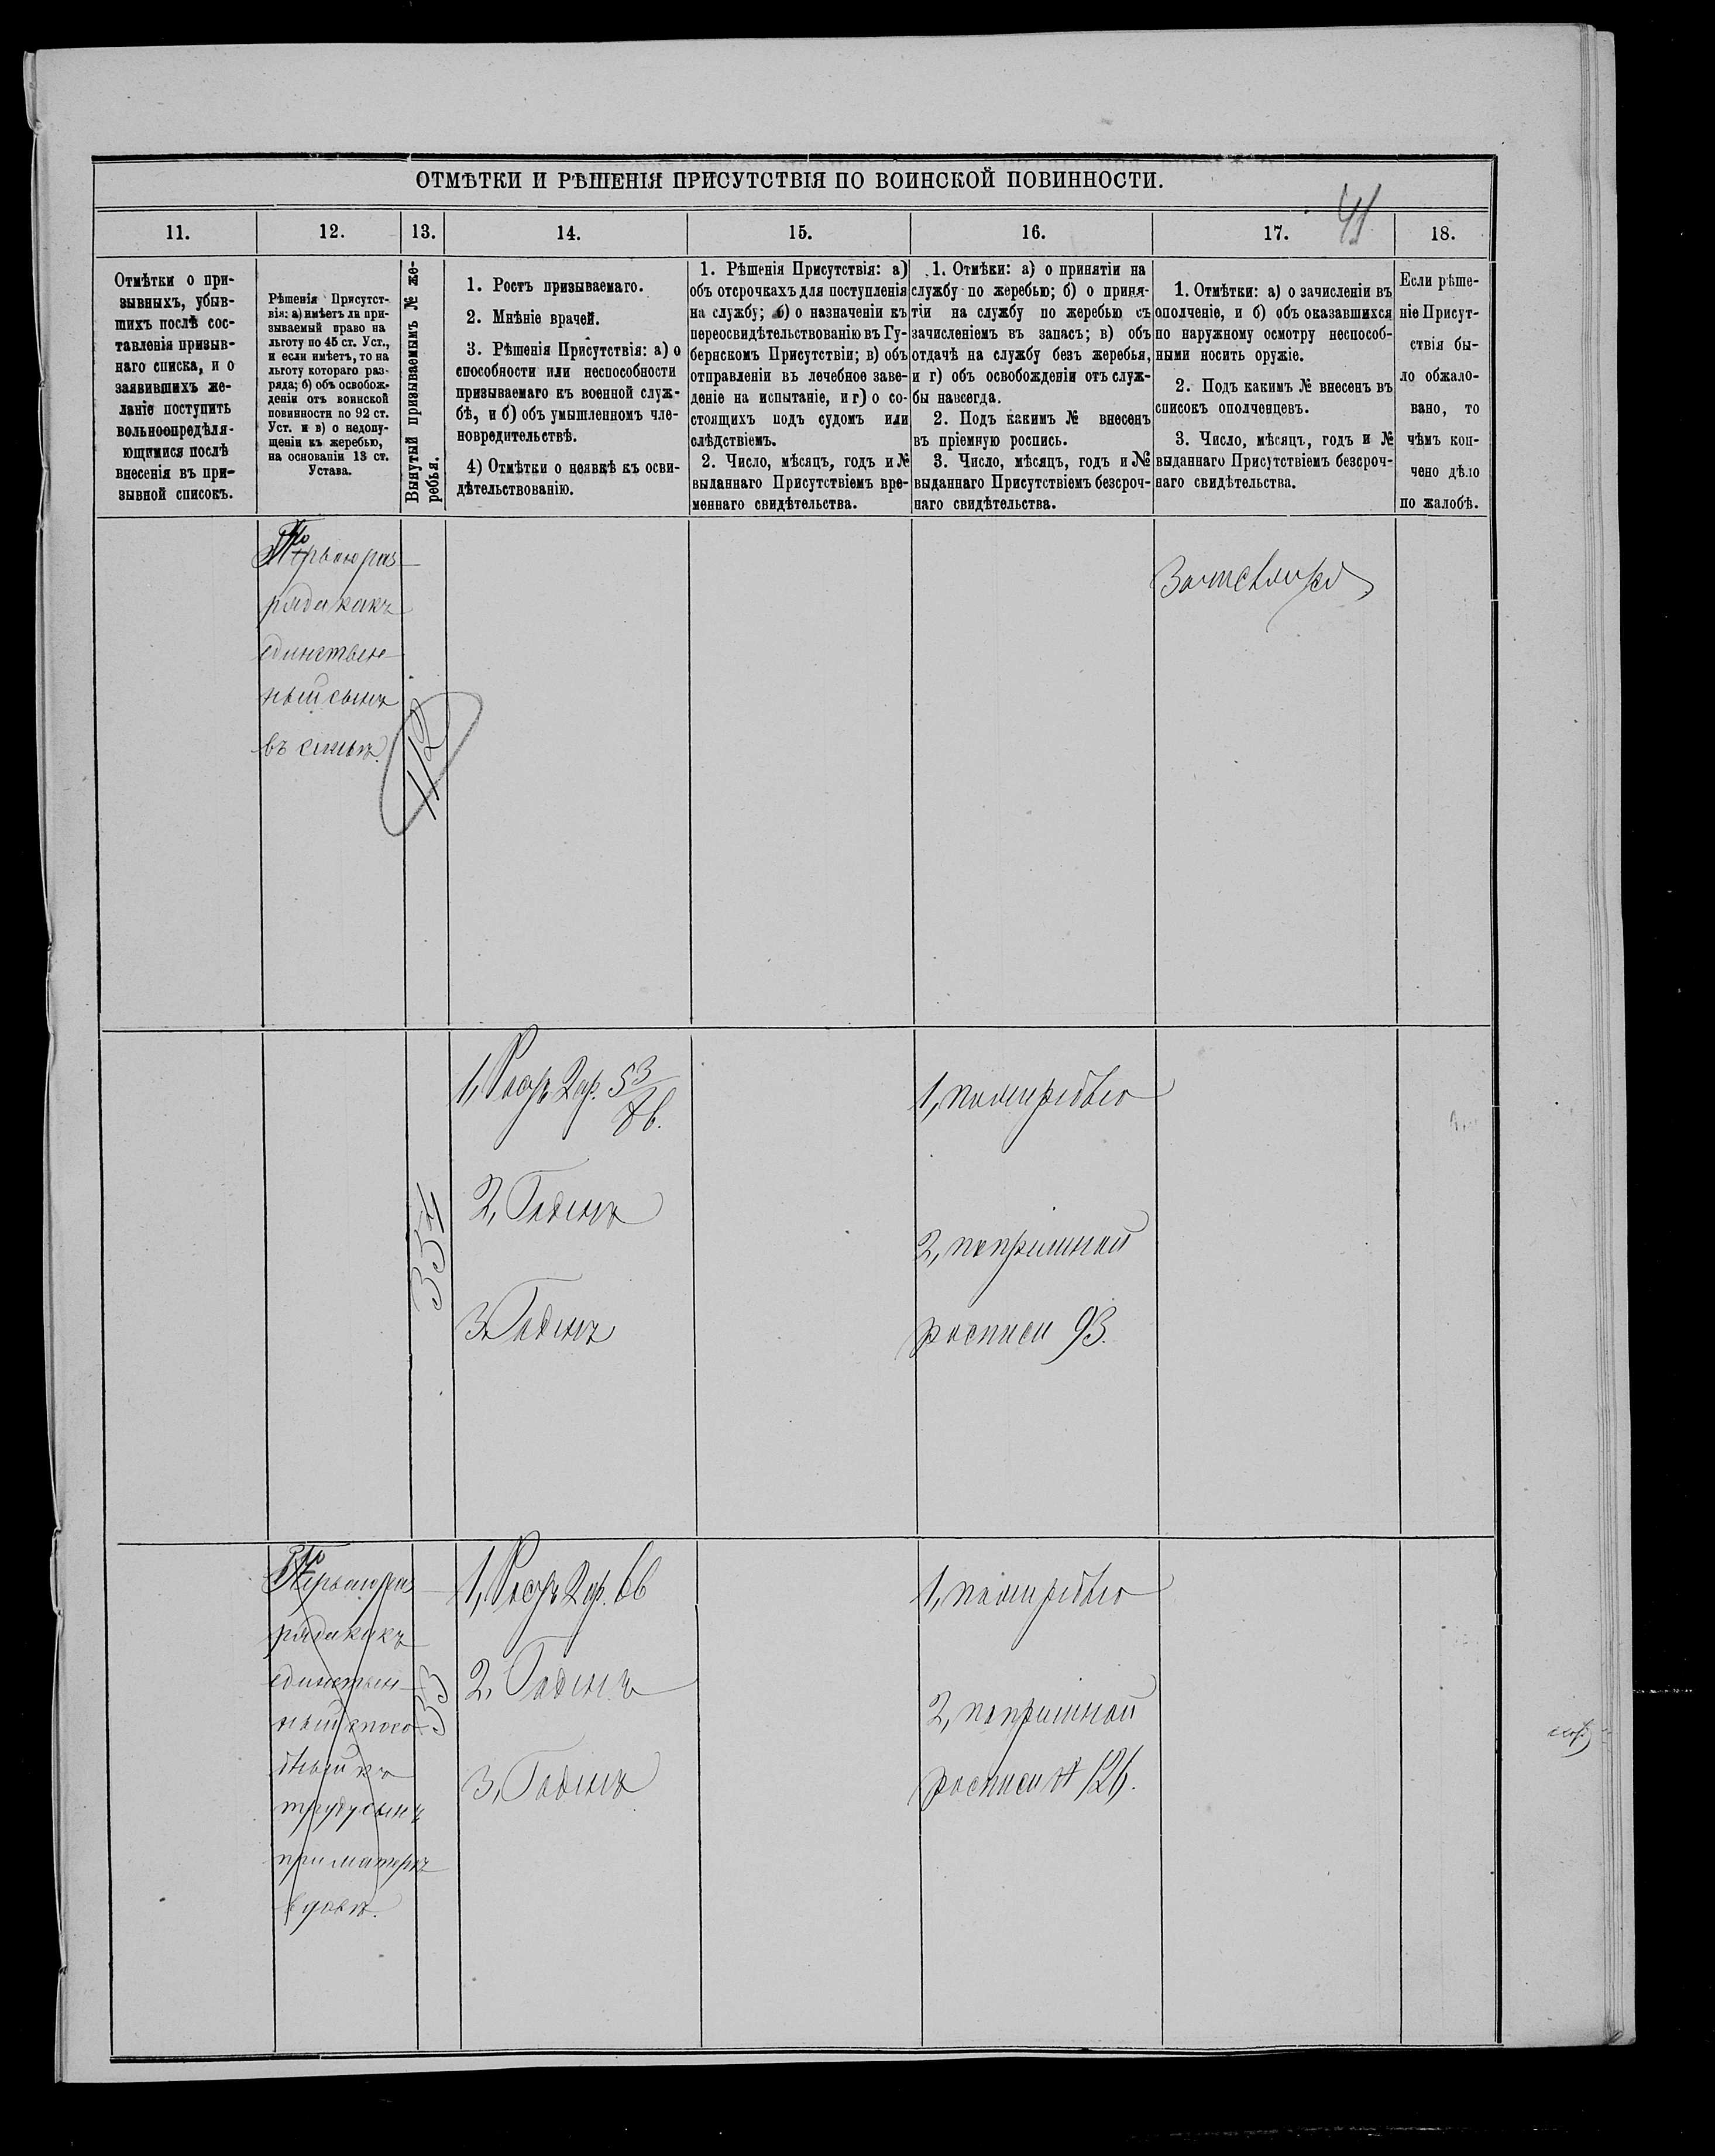 ОТМѢТКИ И РѢШЕНІЯ ПРИСУТСТВІЯ ПО ВОИНСКОЙ ПОВИННОСТИ.
41
11.
12.
13.
14.
15.
16.
17.
18.
Отмѣтки о при-
зывныхъ, убыв-
шихъ послѣ сос-
тавленія призыв-
наго списка, и о
заявившихъ же-
ланіе поступить
вольноопредѣля-
ющимися послѣ
внесенія въ при-
зывной списокъ.
Рѣшенія Присутст-
вія: а) имѣетъ ли при-
зываемый право на
льготу по 45 ст. Уст.,
и если имѣетъ, то на
льготу котораго раз-
ряда; б) объ освобож-
деніи отъ воинской
повинности по 92 ст.
Уст. и в) о недопу-
щеніи къ жеребью,
на основаніи 13 ст.
Устава.
Вынутый призываемымъ № же-
ребья.
1. Ростъ призываемаго.
2. Мнѣніе врачей.
3. Рѣшенія Присутствія: а) о
способности или неспособности
призываемаго къ военной служ-
бѣ, и б) объ умышленномъ чле-
новредительствѣ.
4) Отмѣтки о неявкѣ къ осви-
дѣтельствованію.
1. Рѣшенія Присутствія: а)
объ отсрочкахъ для поступленія
на службу; б) о назначеніи къ
переосвидѣтельствованію въ Гу-
бернскомъ Присутствіи; в) объ
отправленіи въ лечебное заве-
деніе на испытаніе, и г) о со-
стоящихъ подъ судомъ или
слѣдствіемъ.
2. Число, мѣсяцъ, годъ и №
выданнаго Присутствіемъ вре-
меннаго свидѣтельства.
1. Отмѣки: а) о принятіи на
службу по жеребью; б) о приня-
тіи на службу по жеребью съ
зачисленіемъ въ запасъ; в) объ
отдачѣ на службу безъ жеребья,
и г) объ освобожденіи отъ служ-
бы навсегда.
2. Подъ какимъ № внесенъ
въ пріемную роспись.
3. Число, мѣсяцъ, годъ и №
выданнаго Присутствіемъ безсроч-
наго свидѣтельства.
1. Отмѣтки: а) о зачисленіи въ
ополченіе, и б) объ оказавшихся
по наружному осмотру неспособ-
ными носить оружіе.
2. Подъ какимъ № внесенъ въ
списокъ ополченцевъ.
3. Число, мѣсяцъ, годъ и №
выданнаго Присутствіемъ безсроч-
наго свидѣтельства.
Если рѣше-
ніе Присут-
ствія бы-
ло обжало-
вано, то
чѣмъ кон-
чено дѣло
по жалобѣ.
раз-
ряда какъ
единствен-
ный сынъ
въ семьѣ.
112
354
1, Ростъ 2 ар. 5 3/8 в.
2, Годенъ
3, Годенъ
1, по жеребью
2, по пріемной
росписи 93.
раз-
ряда какъ
единствен-
ный спосо-
бный къ
труду сынъ
при матери
вдовѣ.
33
1, Ростъ 2 ар. 6 в
2, Годенъ
3, Годенъ
1, по жеребью
2, по пріемной
росписи № 126.